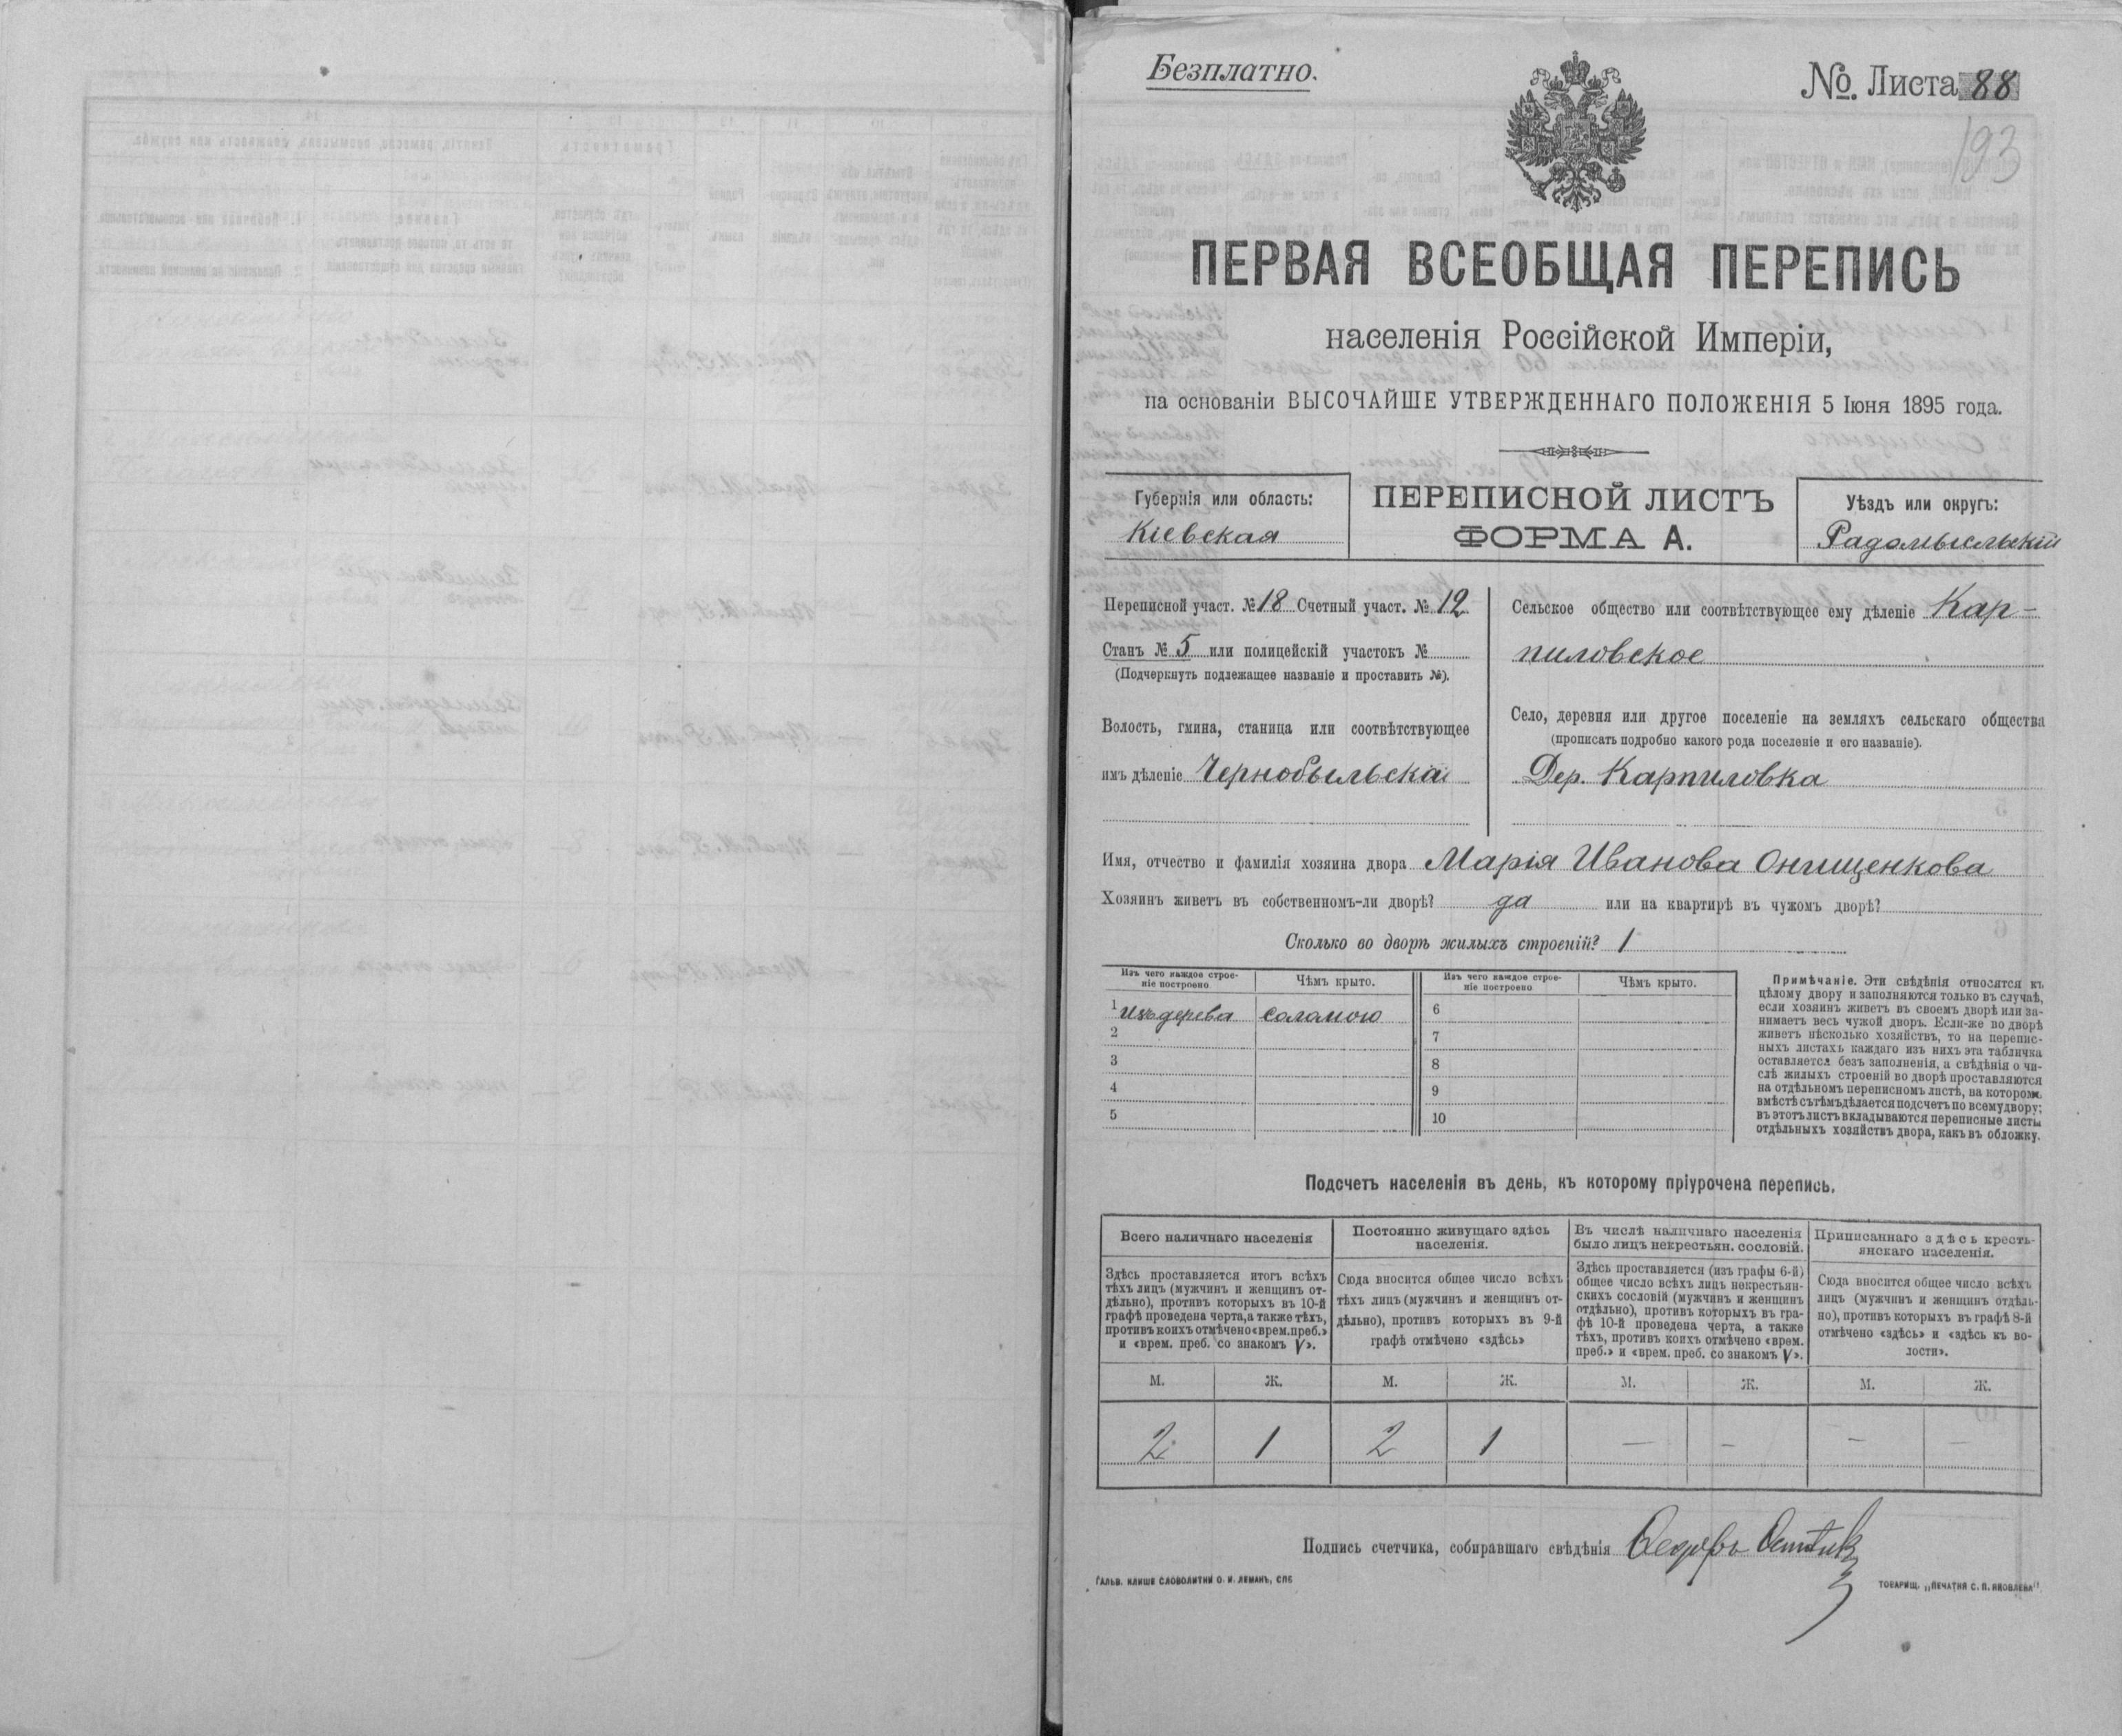 Безплатно.
№. Листа 88
193
ПЕРВАЯ ВСЕОБЩАЯ ПЕРЕПИСЬ
населенія Россійской Имперіи,
на основаніи ВЫСОЧАЙШЕ УТВЕРЖДЕННАГО ПОЛОЖЕНІЯ 5 Іюня 1895 года.
Губернія или область:
Кіевская
ПЕРЕПИСНОЙ ЛИСТЪ
ФОРМА А.
Уѣздъ или округъ:
Радомысльскій
Переписной участ. № 18 Счетный участ. № 12
Станъ № 5 или полицейскій участокъ №
(Подчеркнуть подлежащее названіе и проставить №).
Волость, гмина, станица или соотвѣтствующее
имъ дѣленіе Чернобыльская
Сельское общество или соотвѣтствующее ему дѣленіе Кар-
пиловское
Село, деревня или другое поселеніе на земляхъ сельскаго общества
(прописать подробно какого рода поселеніе и его названіе).
Дер. Карпиловка
Имя, отчество и фамилія хозяина двора Марія Иванова Онищенкова
Хозяинъ живетъ въ собственномъ-ли дворѣ? да или на квартирѣ въ чужомъ дворѣ?
Сколько во дворѣ жилыхъ строеній? 1
Изъ чего каждое строе-
ніе построено
Чѣмъ крыто.
Изъ чего каждое строе-
ніе построено
Чѣмъ крыто.
1 Изъ дерева соломою
2
3
4
5
6
7
8
9
10
Примѣчаніе. Эти свѣдѣнія относятся къ
цѣлому двору и заполняются только въ случаѣ,
если хозяинъ живетъ въ своемъ дворѣ или за-
нимаетъ весь чужой дворъ. Если-же во дворѣ
живетъ нѣсколько хозяйствъ, то на перепис-
ныхъ листахъ каждаго изъ нихъ эта табличка
оставляется безъ заполненія, а свѣдѣнія о чи-
слѣ жилыхъ строеній во дворѣ проставляются
на отдѣльномъ переписномъ листѣ, на которомъ
вмѣстѣ съ тѣмъ дѣлается подсчетъ по всему двору;
въ этотъ листъ вкладываются переписные листы
отдѣльныхъ хозяйствъ двора, какъ въ обложку.
Подсчетъ населенія въ день, къ которому пріурочена перепись.
Всего наличнаго населенія
Постоянно живущаго здѣсь
населенія.
Въ числѣ наличнаго населенія
было лицъ некрестьян. сословій.
Приписаннаго здѣсь кресть-
янскаго населенія.
Здѣсь проставляется итогъ всѣхъ
тѣхъ лицъ (мужчинъ и женщинъ от-
дѣльно), противъ которыхъ въ 10-й
графѣ проведена черта, а также тѣхъ,
противъ коихъ отмѣчено «врем. преб.»
и «врем. преб. со знакомъ V».
Сюда вносится общее число всѣхъ
тѣхъ лицъ (мужчинъ и женщинъ от-
дѣльно), противъ которыхъ въ 9-й
графѣ отмѣчено «здѣсь»
Здѣсь проставляется (изъ графы 6-й)
общее число всѣхъ лицъ некрестьян-
скихъ сословій (мужчинъ и женщинъ
отдѣльно), противъ которыхъ въ гра-
фѣ 10-й проведена черта, а также
тѣхъ, противъ коихъ отмѣчено «врем.
преб.» и «врем. преб. со знакомъ V».
Сюда вносится общее число всѣхъ
лицъ (мужчинъ и женщинъ отдѣль-
но), противъ которыхъ въ графѣ 8-й
отмѣчено «здѣсь» и «здѣсь къ во-
лости».
М. Ж. М. Ж. М. Ж. М. Ж.
2 1 2 1 — — — —
Подпись счетчика, собиравшаго свѣдѣнія Ѳедоръ
ГАЛЬВ. КЛИШЕ СЛОВОЛИТНИ О. И. ЛЕМАНЪ, СПБ
ТОВАРИЩ. „ПЕЧАТНЯ С. П. ЯКОВЛЕВА"